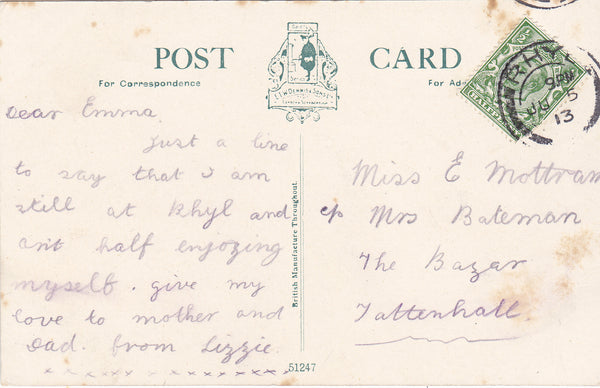 POST CARD
For Correspondence
For Ad
RHYL
9 PM
JU 5
13
HALFPENNY
Dear Emma.
Just a line
to say that I am
still at Rhyl and
arit half enjoying
myself. give my
love to mother and
Dad. from Lizzie.
x x x x x x x x x x x
British Manufacture Throughout.
51247
Miss E Mottram
c/o Mrs Bateman
The Bazar
Tattenhall